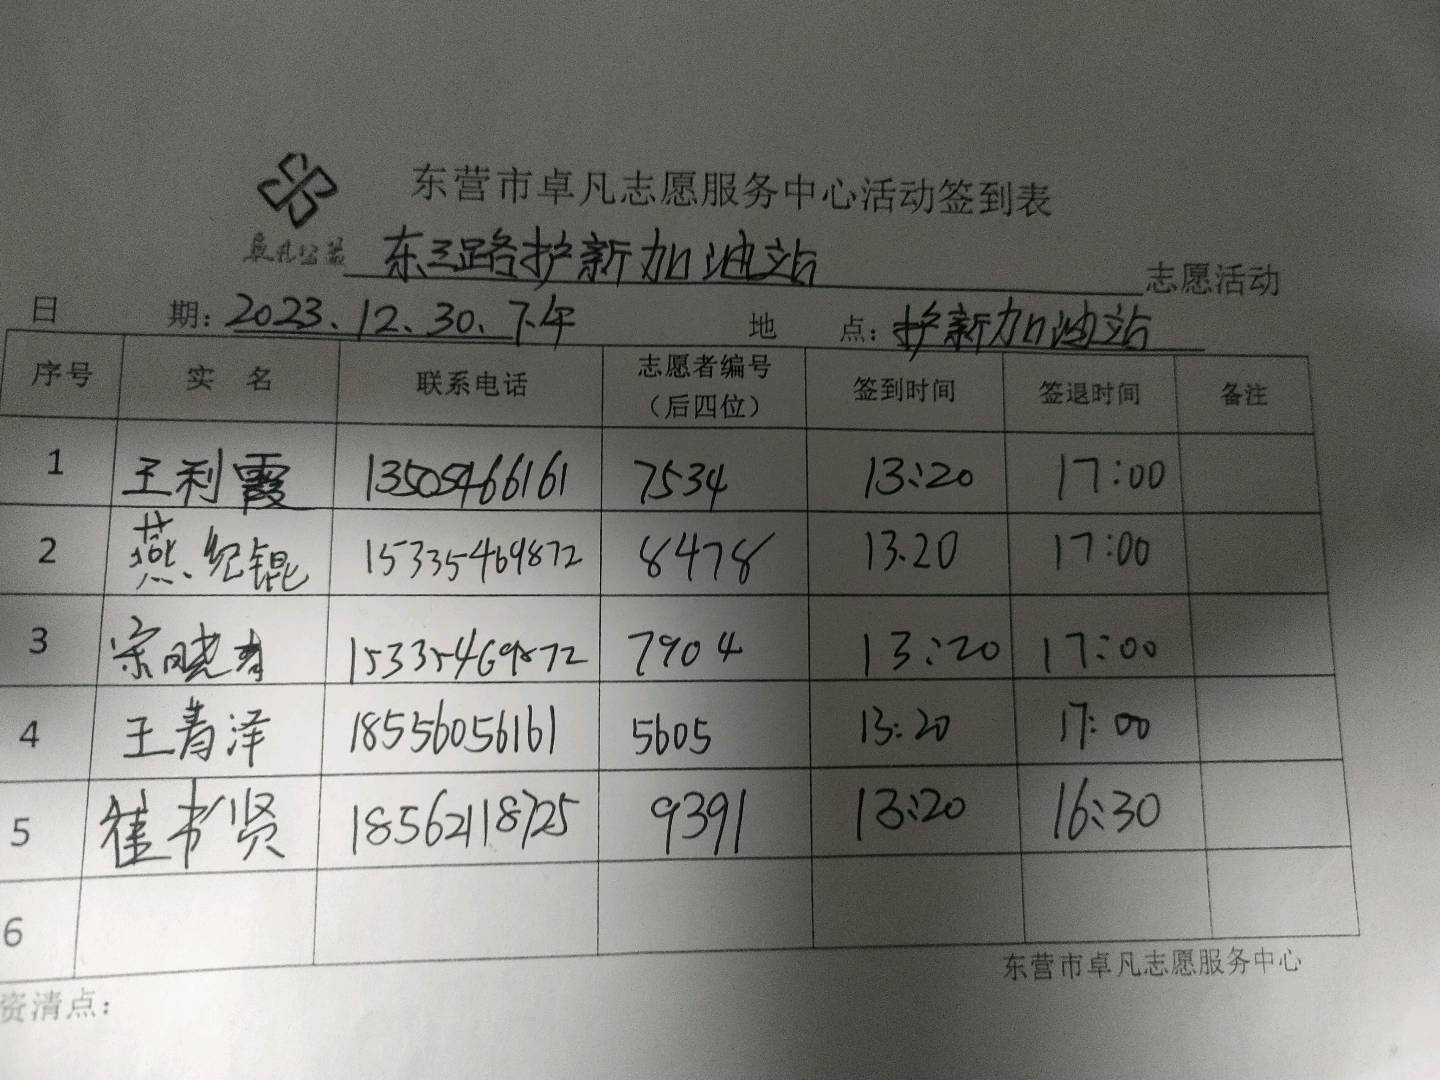 东营市卓凡志愿服务中心活动签到表
卓凡公益 东三路护新加油站 志愿活动
日 期：2023.12.30.下午 地 点：护新加油站
序号 实 名 联系电话 志愿者编号（后四位） 签到时间 签退时间 备注
1 王利霞 13505466161 7534 13:20 17:00
2 燕纪锟 15335469872 8478 13.20 17:00
3 宋晓 15335469872 7904 13:20 17:00
4 王青泽 18556056161 5605 13:20 17:00
5 崔书贤 18562118725 9391 13:20 16:30
6
东营市卓凡志愿服务中心
资清点：